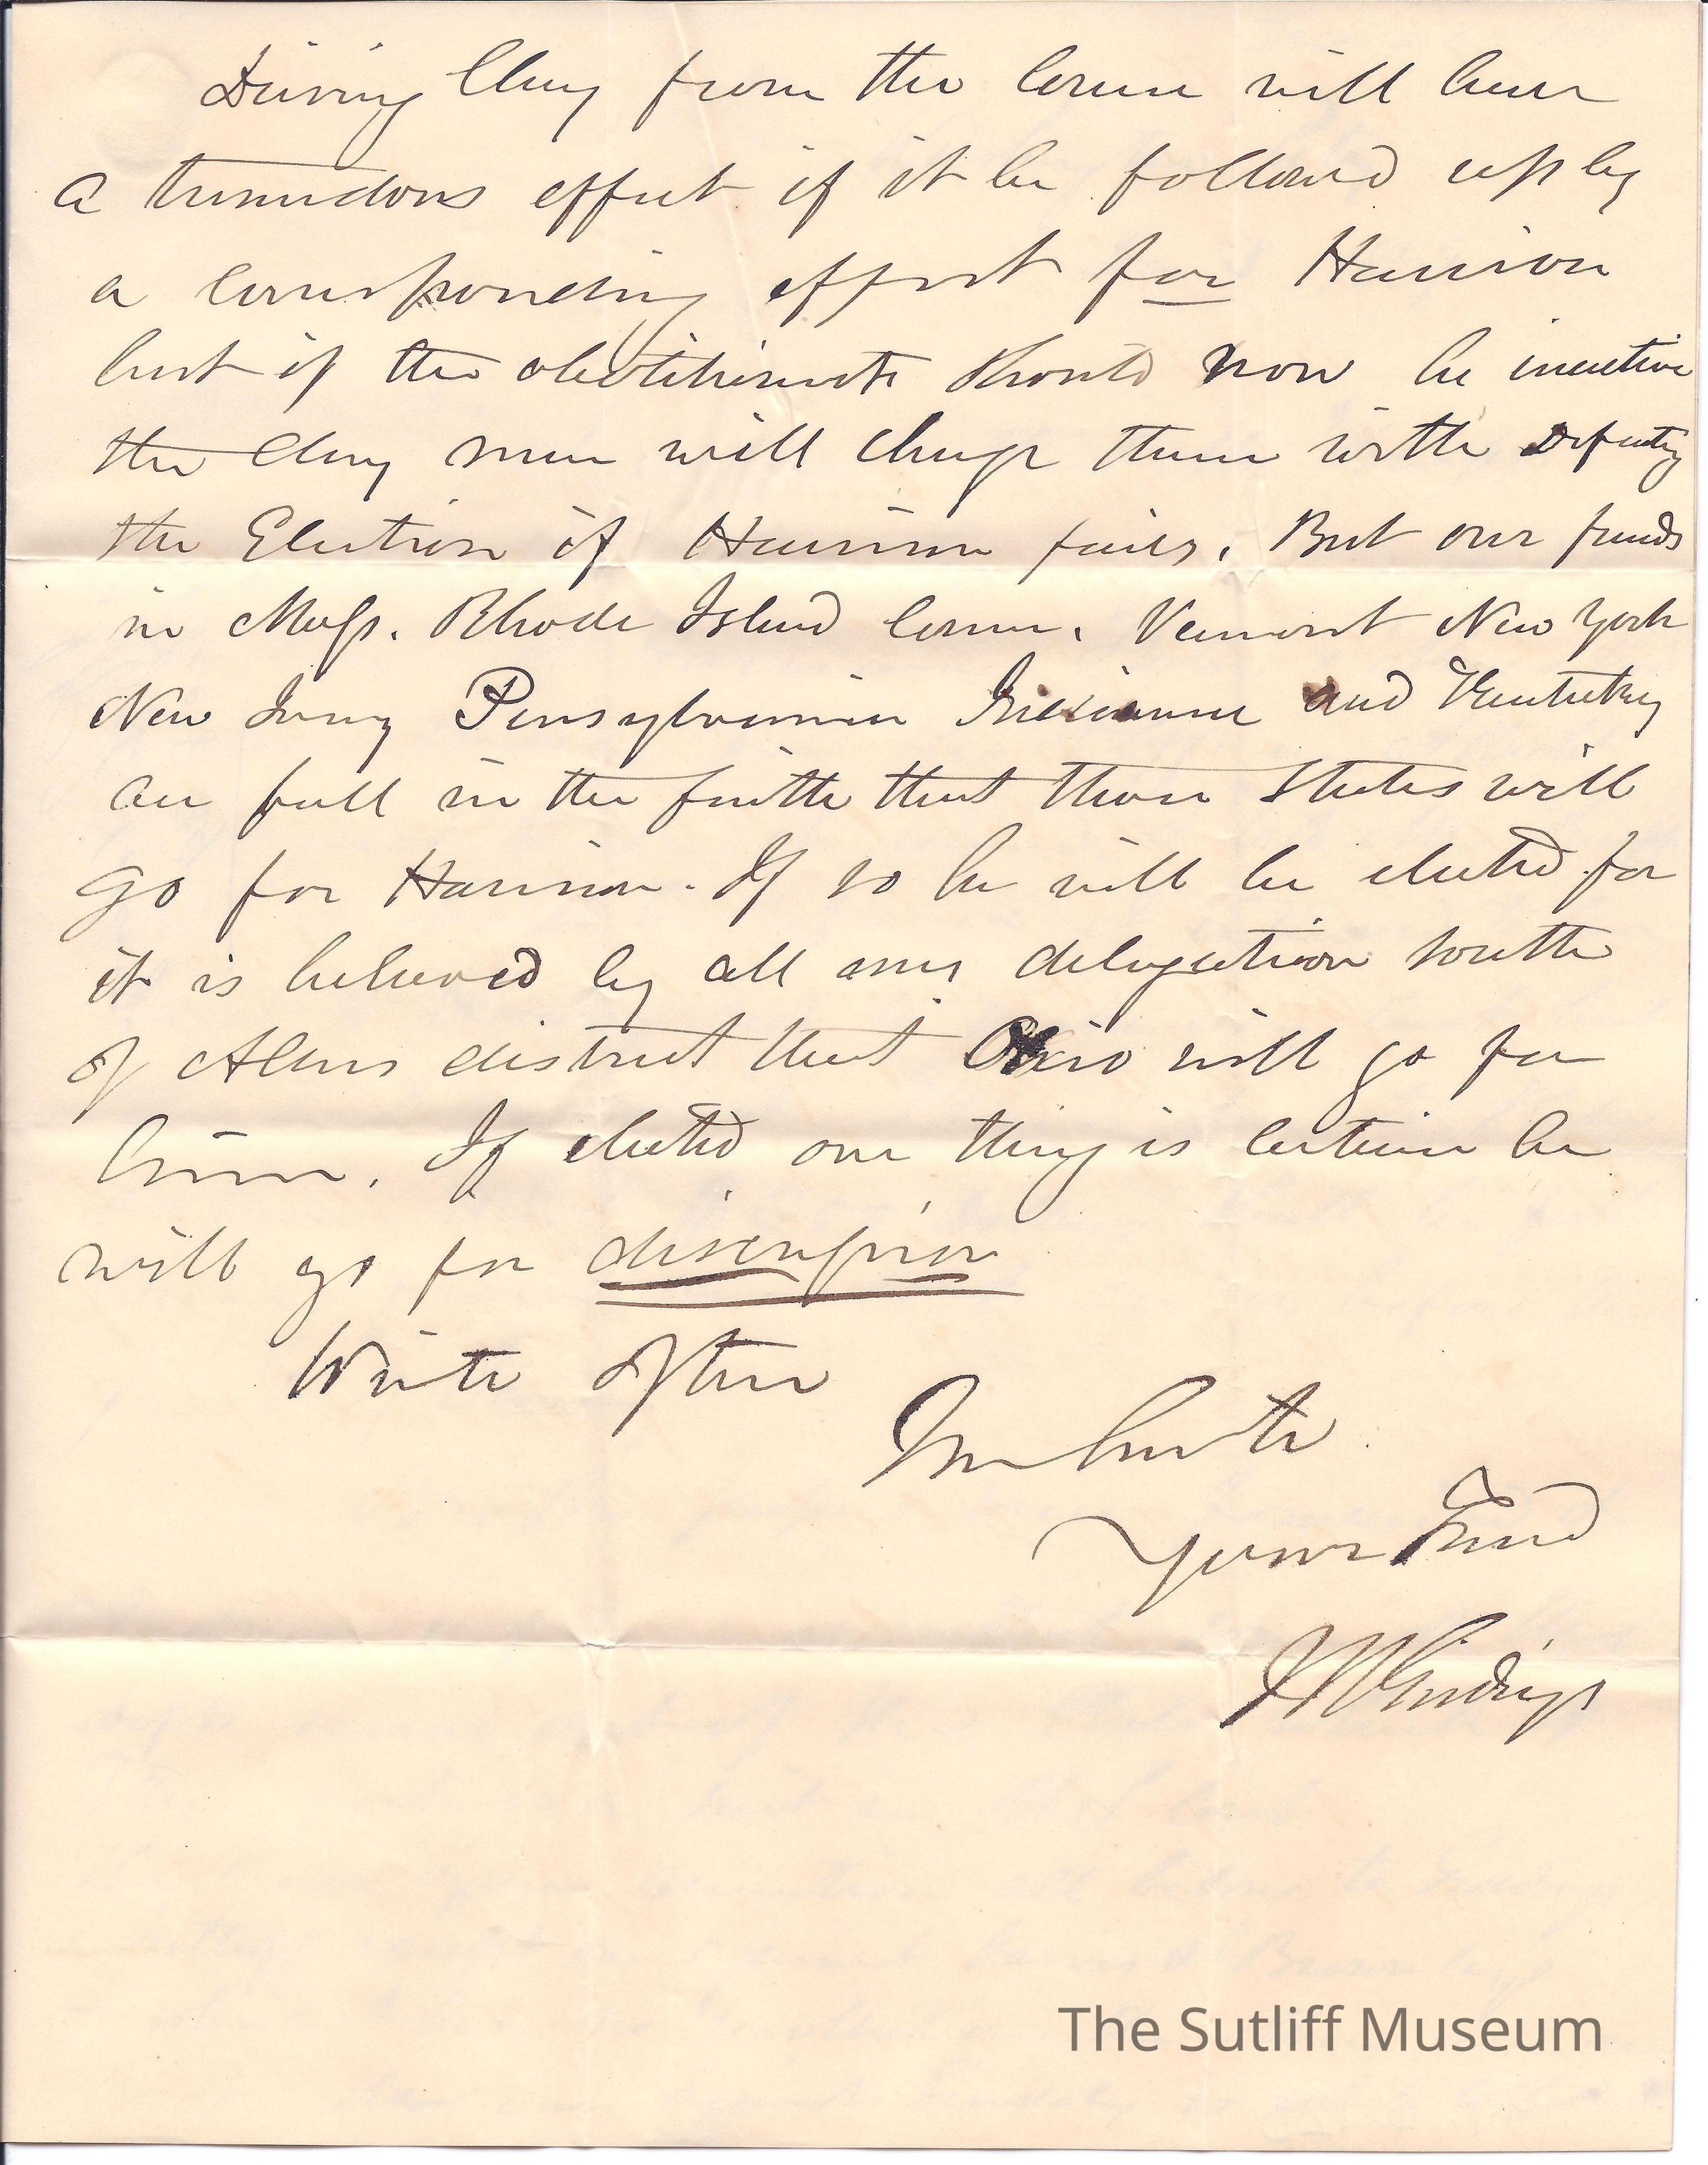 Driving Clay from the course will have
a tremendous effect if it be followed up by
a corresponding effort for Harrison
but if the abolitionists should now be inactive
the Clay men will charge them with defeating
the Election if Harrison fails. But our friends
in Mass. Rhode Island Conn. Vermont New York
New Jersey Pensylvania Indianna and Kentucky
are full in the faith that those States will
go for Harrison. If so he will be elected for
it is believed by all our delegation south
of Allens district that Ohio will go for
him. If elected one thing is certain he
will go for discussion
Write often
In haste
Your Friend
J R Giddings
The Sutliff Museum